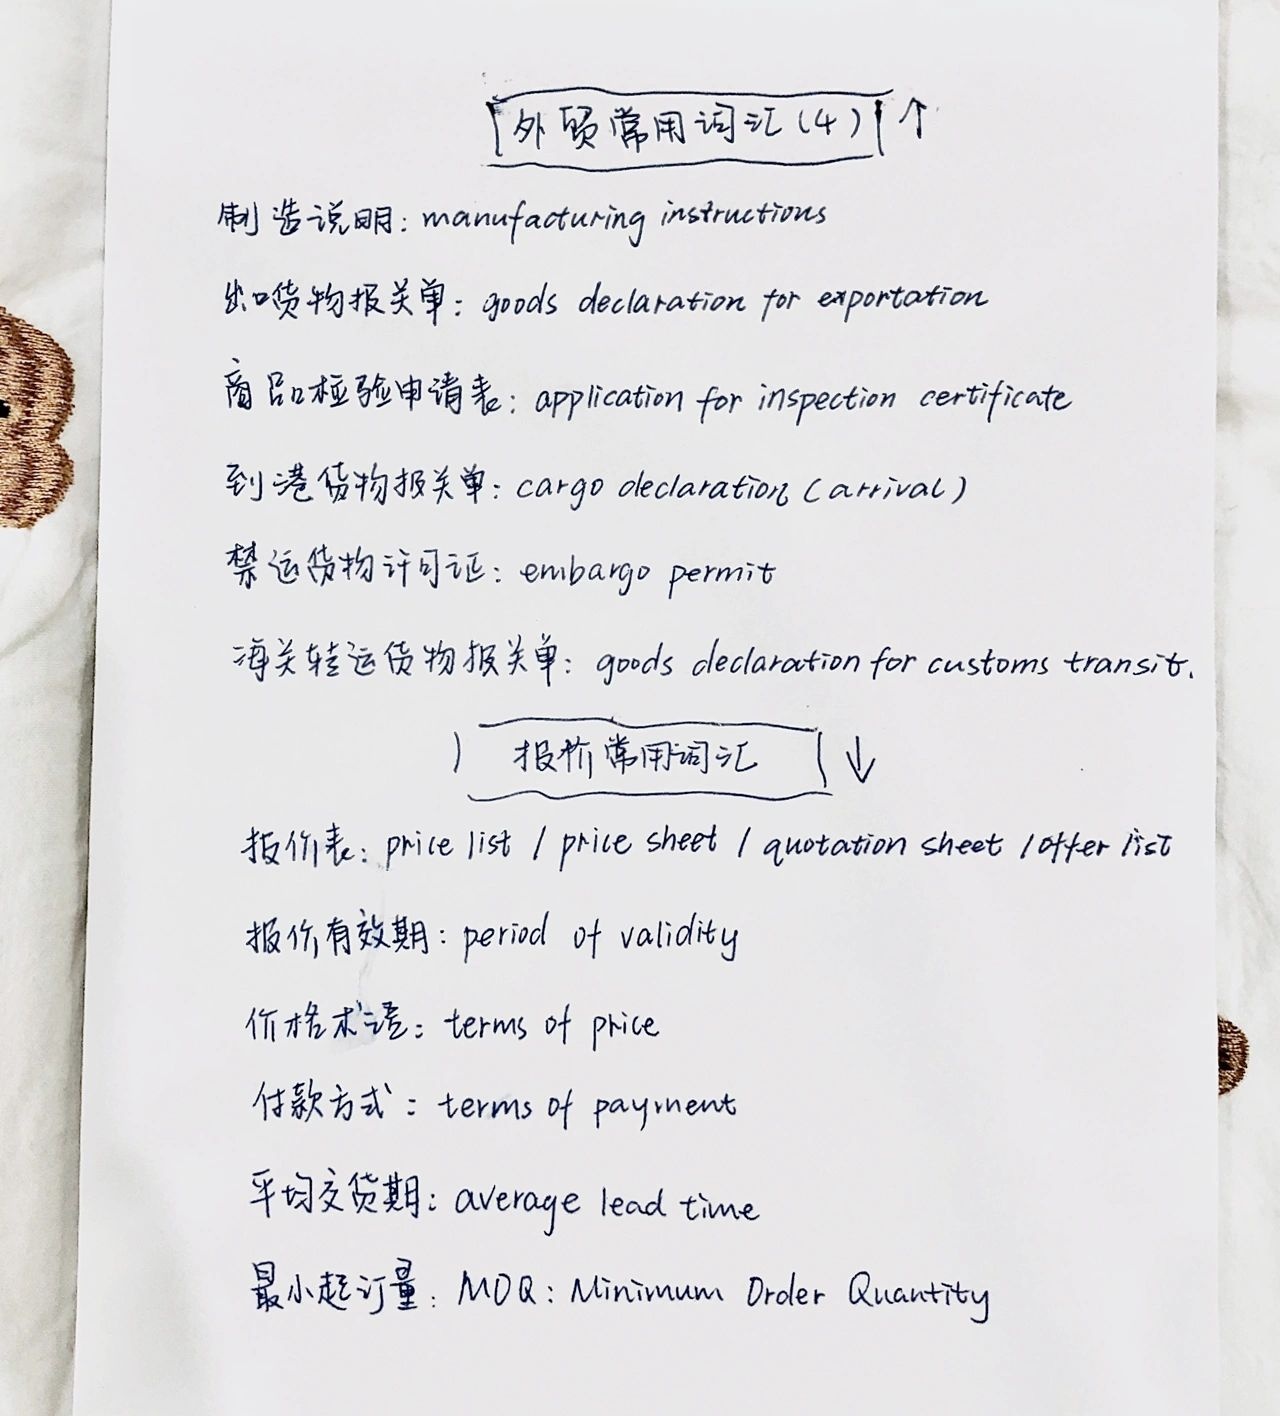 外贸常用词汇(4) ↑
制造说明: manufacturing instructions
出口货物报关单: goods declaration for exportation
商品检验申请表: application for inspection certificate
到港货物报关单: cargo declaration (arrival)
禁运货物许可证: embargo permit
海关转运货物报关单: goods declaration for customs transit.
报价常用词汇 ↓
报价表: price list / price sheet / quotation sheet / offer list
报价有效期: period of validity
价格术语: terms of price
付款方式: terms of payment
平均交货期: average lead time
最小起订量: MOQ: Minimum Order Quantity